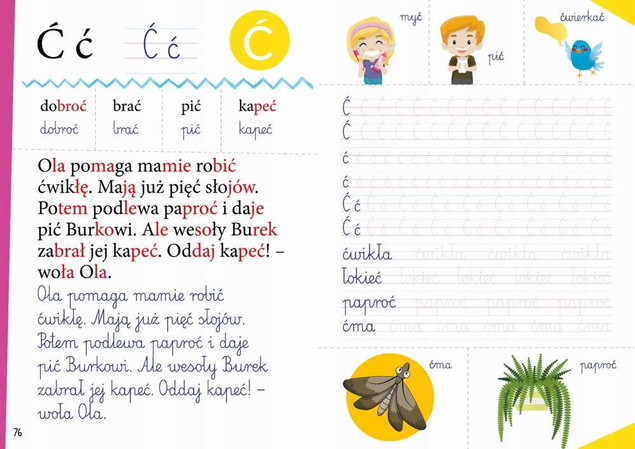 Ć ć Ć ć Ć
dobroć brać pić kapeć
dobroć brać pić kapeć
Ola pomaga mamie robić
ćwikłę. Mają już pięć słojów.
Potem podlewa paproć i daje
pić Burkowi. Ale wesoły Burek
zabrał jej kapeć. Oddaj kapeć! –
woła Ola.
Ola pomaga mamie robić
ćwikłę. Mają już pięć słojów.
Potem podlewa paproć i daje
pić Burkowi. Ale wesoły Burek
zabrał jej kapeć. Oddaj kapeć! –
woła Ola.
76
myć
pić
ćwierkać
Ć Ć Ć Ć Ć Ć Ć Ć Ć Ć Ć Ć
Ć Ć Ć Ć Ć Ć Ć Ć Ć Ć Ć Ć
ć ć ć ć ć ć ć ć ć ć ć ć
ć ć ć ć ć ć ć ć ć ć ć ć
Ć ć Ć ć Ć ć Ć ć Ć ć Ć ć
Ć ć Ć ć Ć ć Ć ć Ć ć Ć ć
ćwikła ćwikła ćwikła ćwikła
łokieć łokieć łokieć łokieć łokieć
paproć paproć paproć paproć
ćma ćma ćma ćma ćma ćma
ćma
paproć